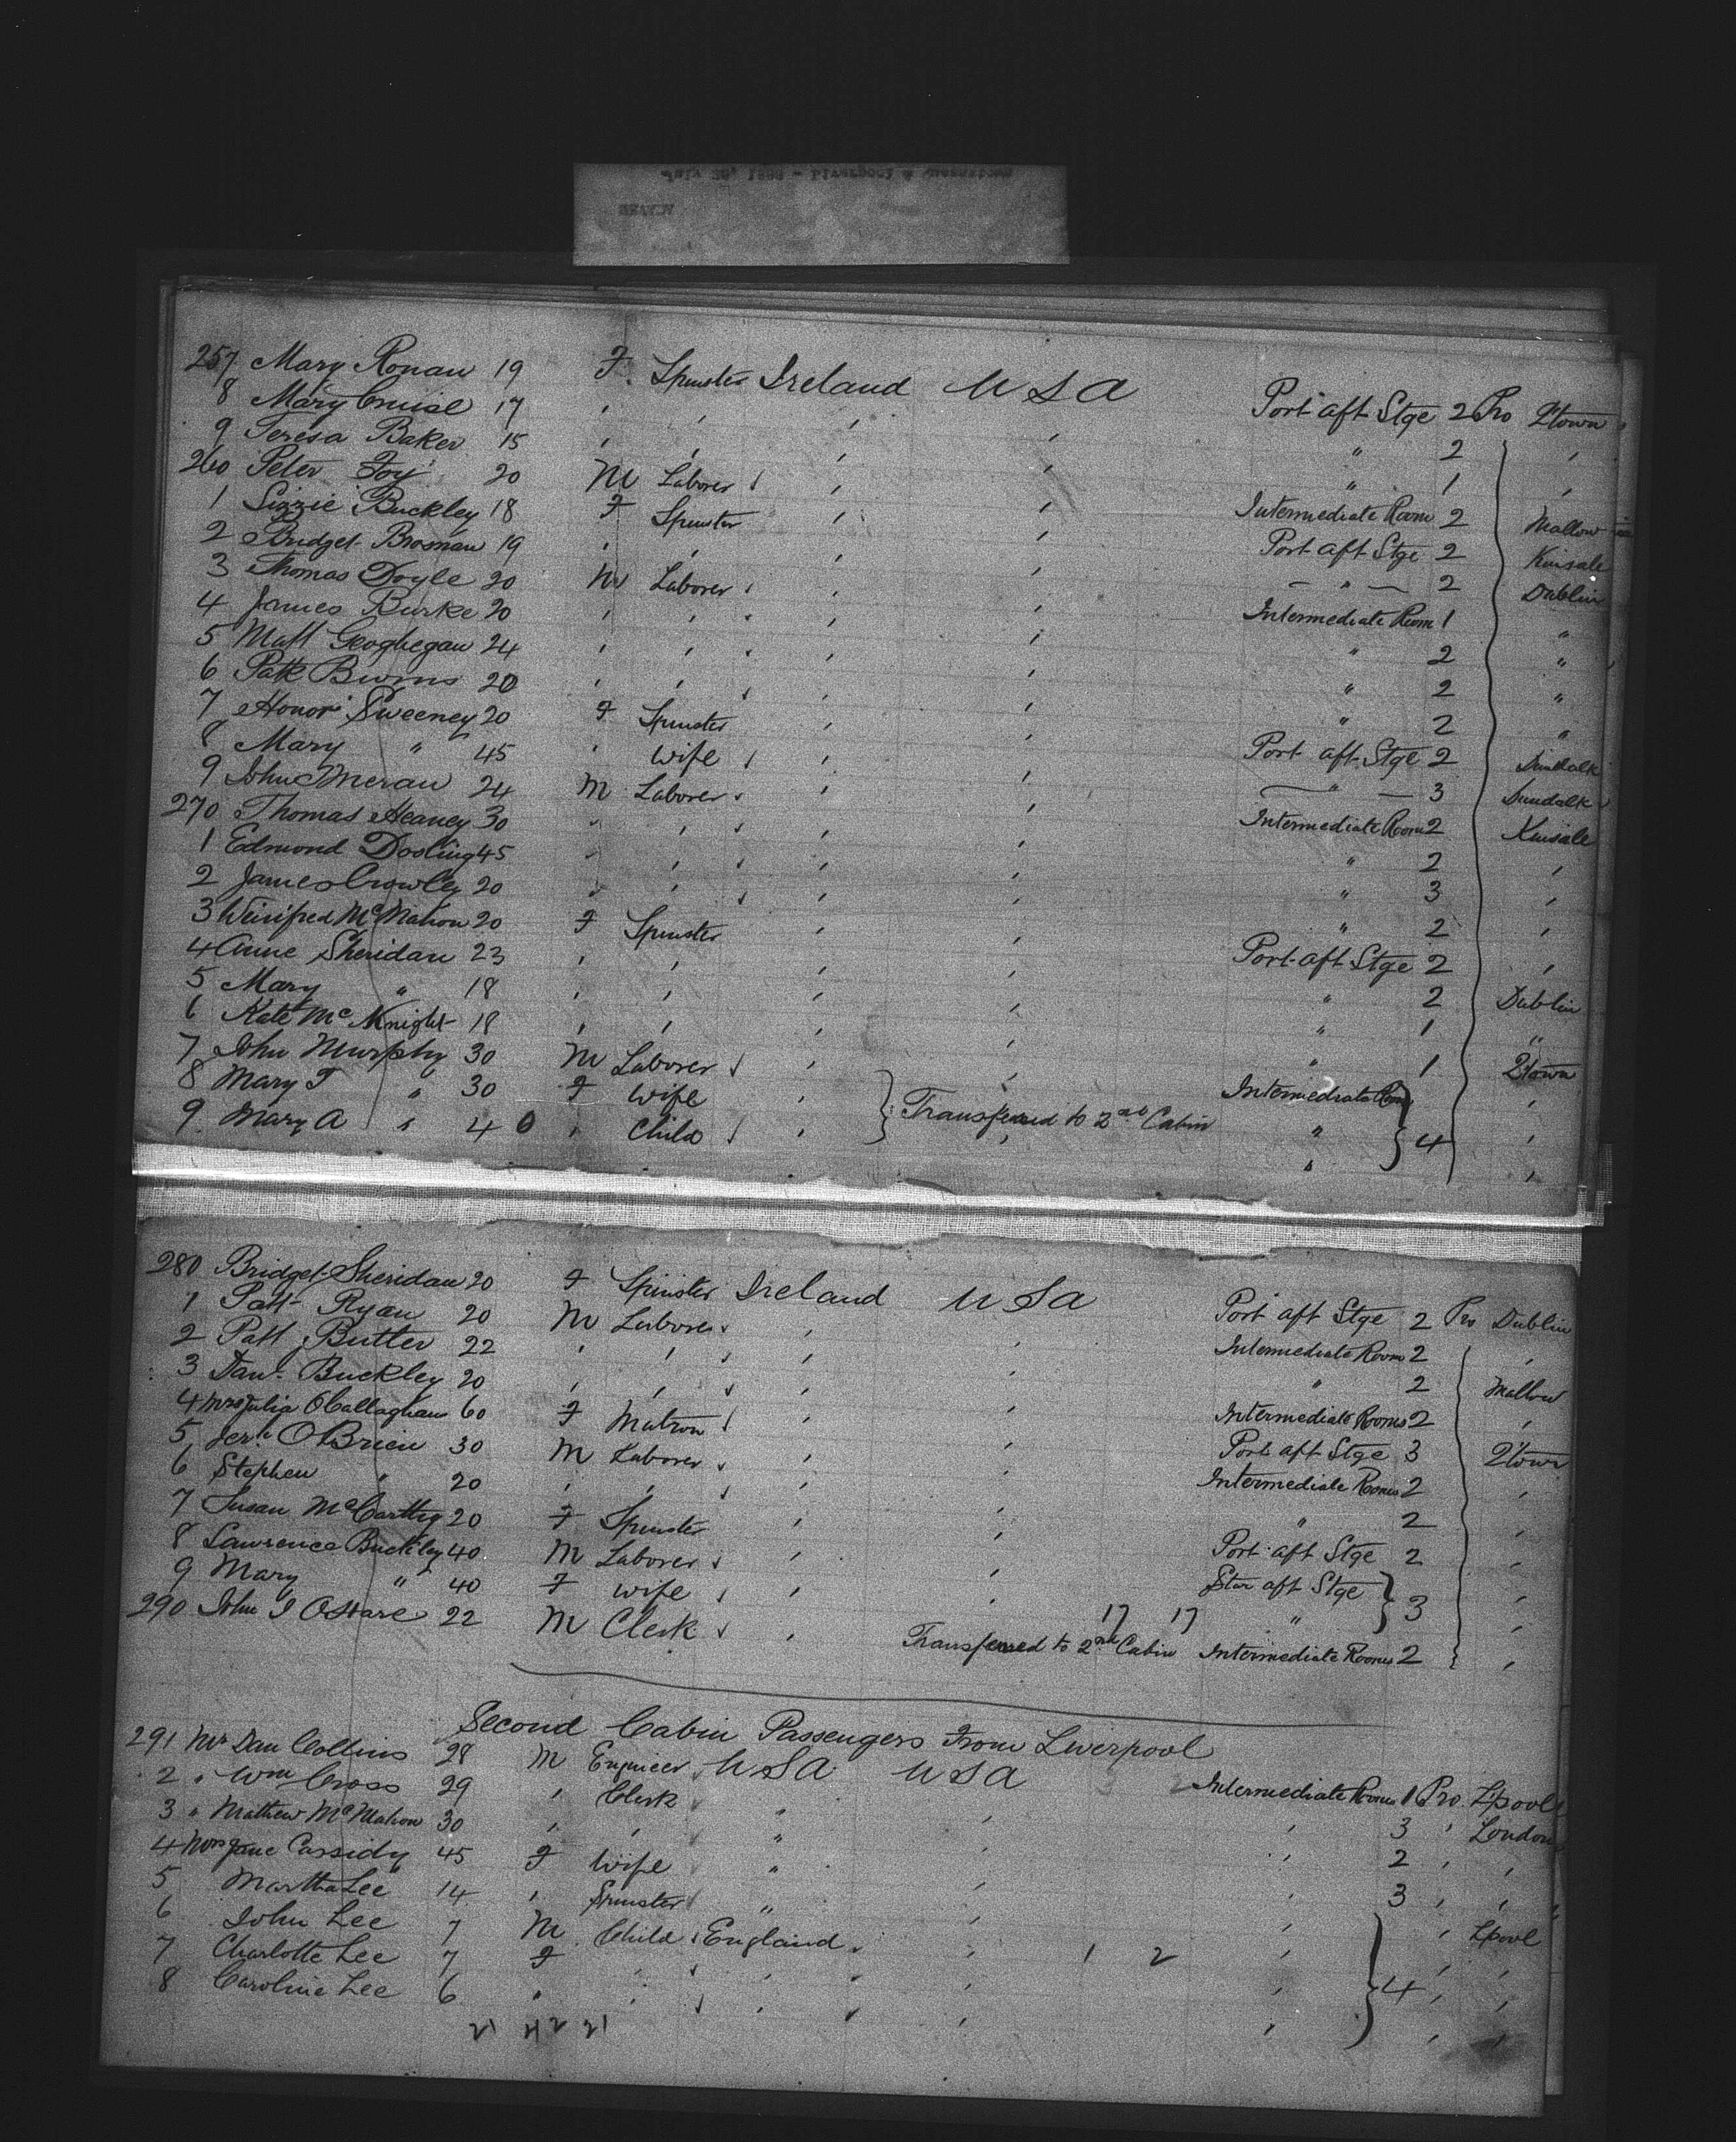 257 Mary Ronan 19 F. Spinster Ireland U S A Port aft Stge 2 Pro Qtown
8 Mary Cruise 17 " " " " " 2 "
9 Teresa Baker 15 " " " " " 1 "
260 Peter Foy 20 M Laborer " " Intermediate Room 2 Mallow
1 Lizzie Buckley 18 F Spinster " " Port aft Stge 2 Kinsale
2 Bridget Brosnan 19 " " " " — " — 2 Dublin
3 Thomas Doyle 20 M Laborer " " Intermediate Room 1 "
4 James Burke 20 " " " " " 2 "
5 Matt Geoghegan 24 " " " " " 2 "
6 Patk Burns 20 " " " " " 2 "
7 Honor Sweeney 20 F Spinster " " Port aft Stge 2 Dundalk
8 Mary " 45 " Wife " " — " — 3 Dundalk
9 John Meran 24 M Laborer " " Intermediate Room 2 Kinsale
270 Thomas Heaney 30 " " " " " 2 "
1 Edmond Dooling 45 " " " " " 3 "
2 James Crowley 20 " " " " " 2 "
3 Winifred McMahon 20 F Spinster " " Port aft Stge 2 "
4 Anne Sheridan 23 " " " " " 2 Dublin
5 Mary " 18 " " " " " 1 "
6 Kate McKnight 18 " " " " " 1 Qtown
7 John Murphy 30 M Laborer " " Intermediate Room "
8 Mary T " 30 F Wife " Transferred to 2nd Cabin " 4 "
9 Mary A " 4 " Child " " " "
280 Bridget Sheridan 20 F Spinster Ireland U S A Port aft Stge 2 Pro Dublin
1 Patt Ryan 20 M Laborer " " Intermediate Room 2 "
2 Patt Butler 22 " " " " " 2 Mallow
3 Danl Buckley 20 " " " " Intermediate Rooms 2 "
4 Mrs Julia O'Callaghan 60 F Matron " " Port aft Stge 3 Qtown
5 Jerh O'Brien 30 M Laborer " " Intermediate Rooms 2 "
6 Stephen " 20 " " " " " 2 "
7 Susan McCarthy 20 F Spinster " " Port aft Stge 2 "
8 Lawrence Buckley 40 M Laborer " " Star aft Stge 3 "
9 Mary " 40 F Wife " " 17 17 " "
290 John J O'Hare 22 M Clerk " Transferred to 2nd Cabin Intermediate Rooms 2 "
Second Cabin Passengers From Liverpool
291 Mr Dan Collins 28 M Engineer U S A U S A Intermediate Rooms 1 Pro. L'pool
2 " Wm Cross 29 " Clerk " " " 3 " London
3 " Mathew McMahon 30 " " " " " 2 " "
4 Mrs Jane Cassidy 45 F Wife " " " 3 " "
5 Martha Lee 14 " Spinster " " " " Lpool
6 John Lee 7 M Child England " 1 2 " " "
7 Charlotte Lee 7 F " " " " 4 " "
8 Caroline Lee 6 " " " " " "
21 42 21